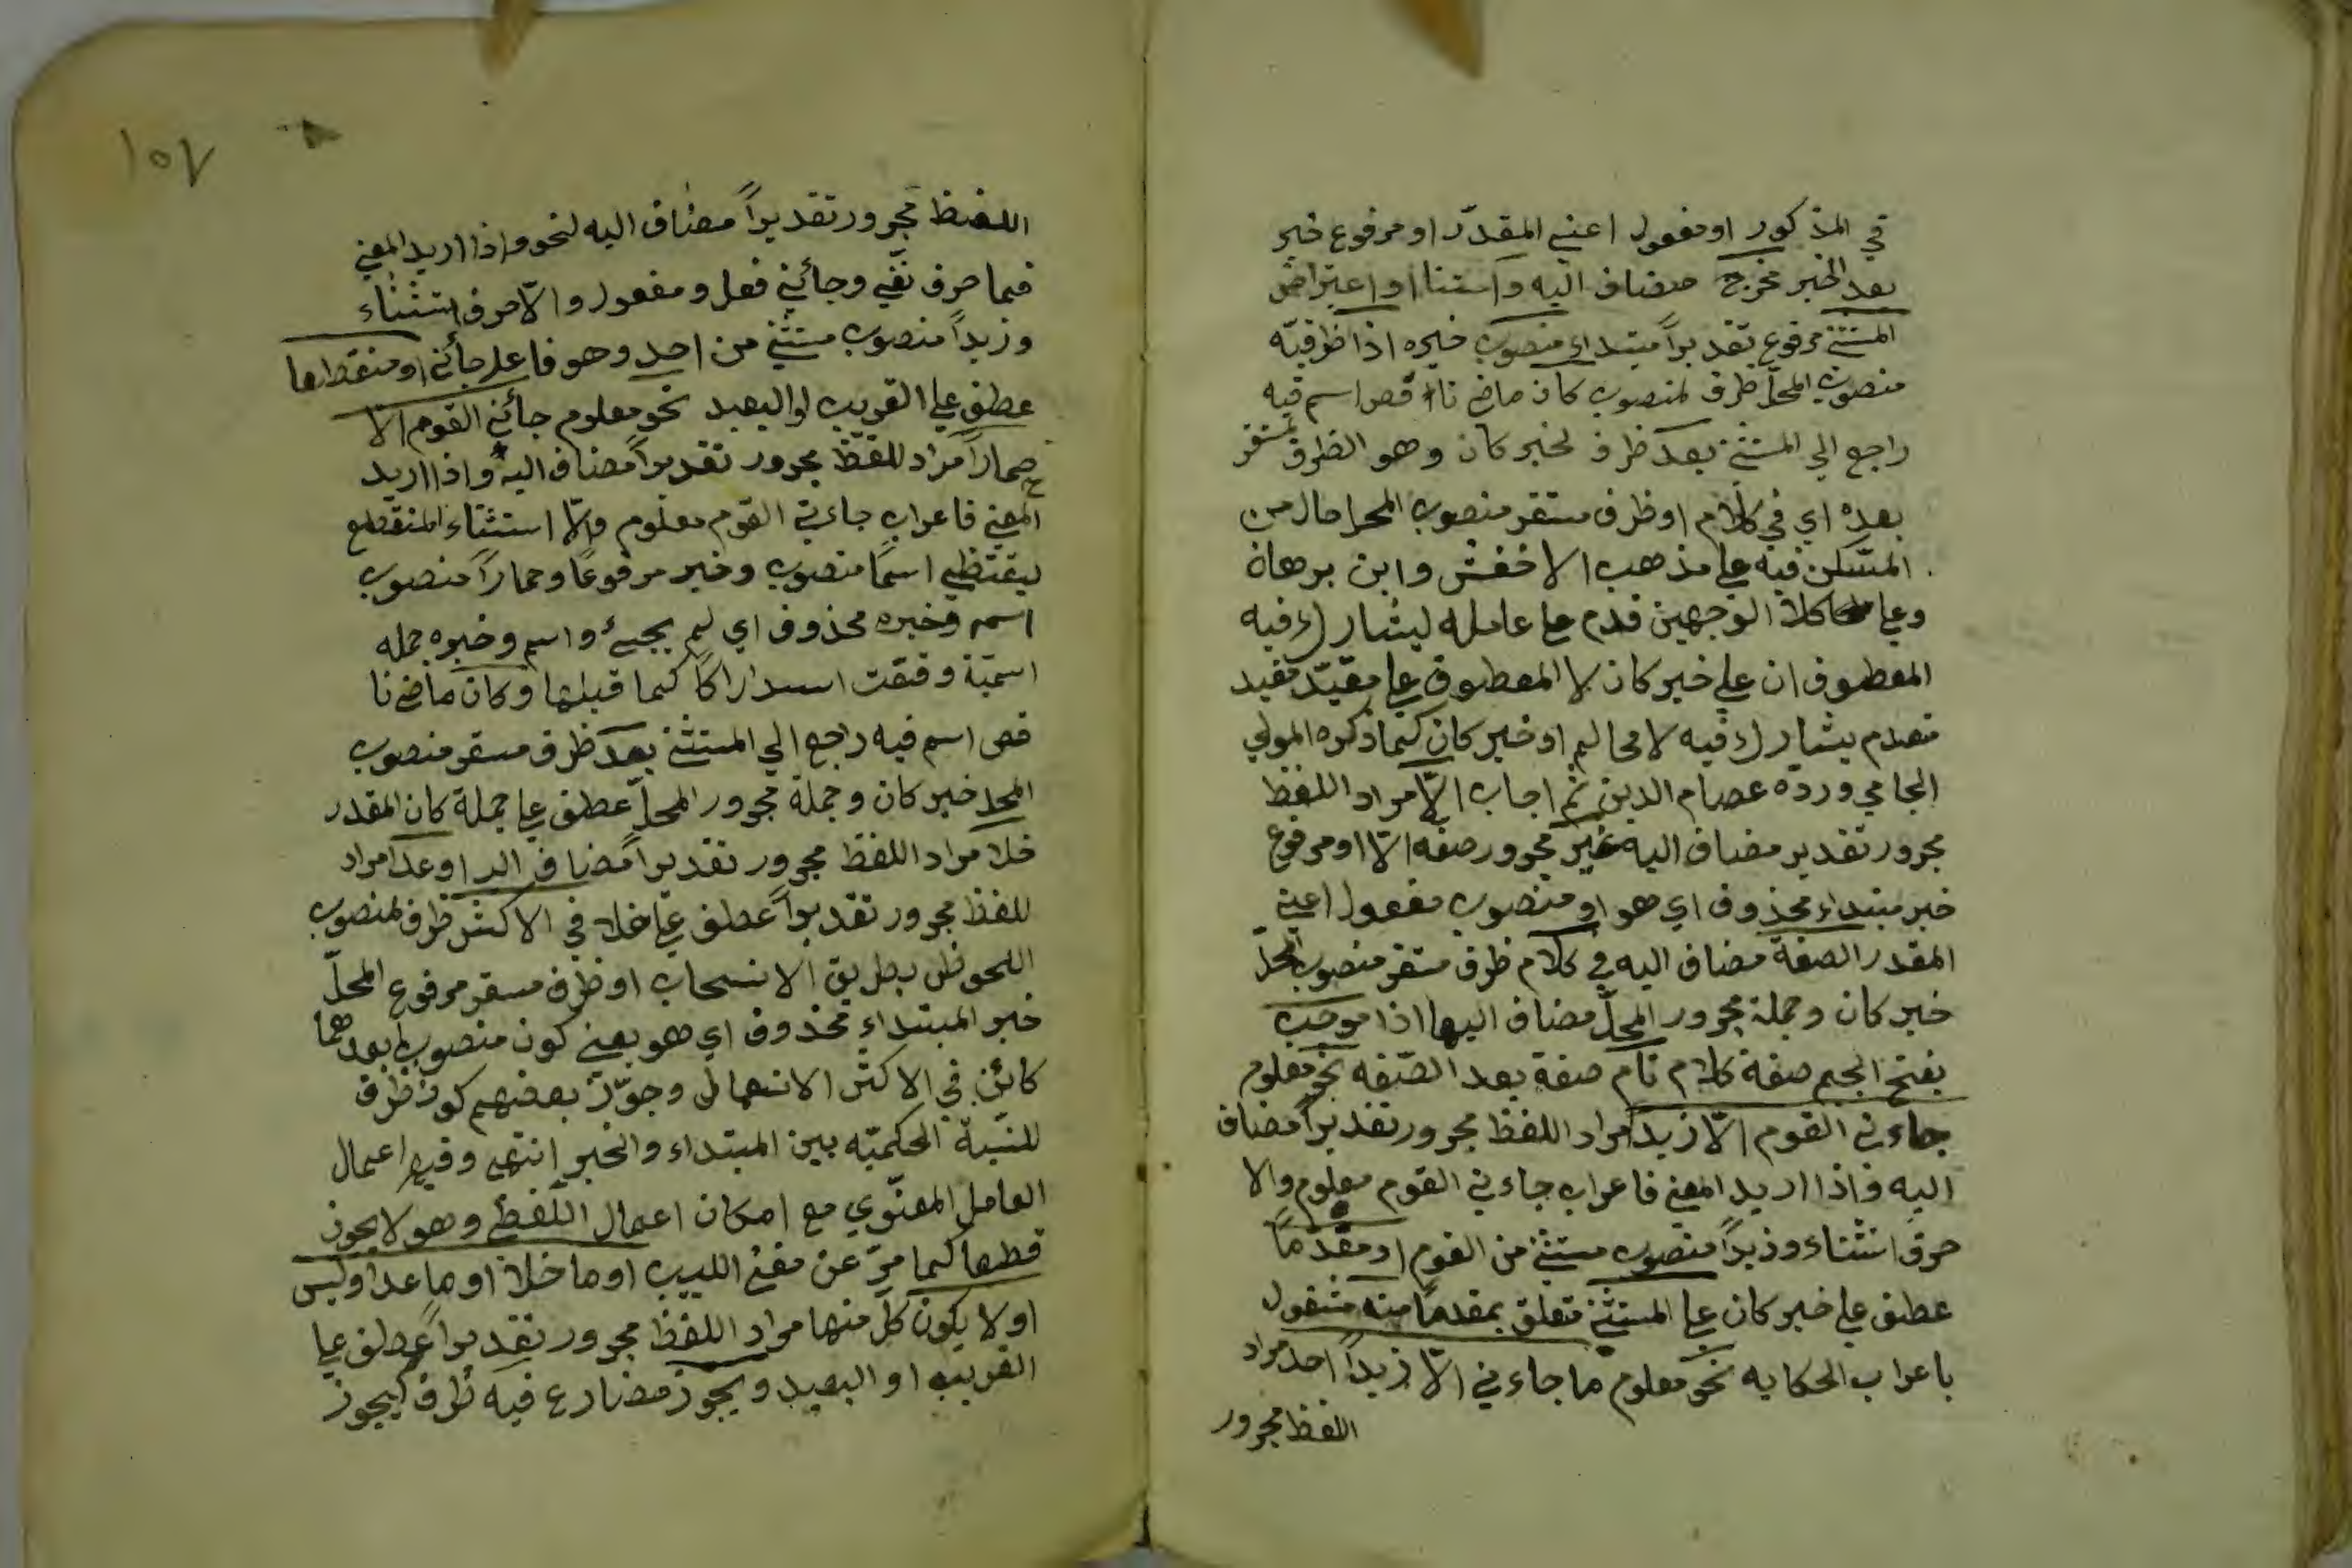 في المذكور او مفعول اعني المقدّر او مرفوع خبر
بعد الخبر مخرج مضاف اليه واستثنا او اعتراض
المستثنى مرفوع تقديراً مبتداء منصوب خبره اذا ظرفيّه
منصوب المحلّ ظرف لمنصوب كان ماض ناقص اسم فيه
راجع الي المستثنى بعد ظرف لخبر كان وهو الظرف مستقر
بعده اي في كلام او ظرف مستقر منصوب المحل حال من
المستكن فيه علي مذهب الاخفش وابن برهان
وعلي كلا الوجهين قدم علي عامله ليشارك فيه
المعطوف ان علي خبر كان لا المعطوف علي مقيّد بقيد
مقدم يشارك فيه لا محالم او خبر كان كما ذكره المولي
الجامي وردّه عصام الدين ثم اجاب الّا مراد اللفظ
مجرور تقدير مضاف اليه غير مجرور صفه الّا او مرفوع
خبر مبتداء محذوف اي هو او منصوب مفعول اعني
المقدر الصفة مضاف اليه في كلام ظرف مستقر منصوب المحلّ
خبر كان وجملة مجرور المحلّ مضاف اليها اذا موجب
بفتح الجيم صفة كلام تام صفة بعد الصّفه نحو معلوم
جاءني القوم الّا زيداً مراد اللفظ مجرور تقديراً مضاف
اليه فاذا اريد المعني فاعراب جاءني القوم معلوم والا
حرف استثناء وزيداً منصوب مستثني من القوم او مقدّماً
عطف علي خبر كان علي المستثني متعلق بمقدماً منه مشغول
باعراب الحكايه نحو معلوم ما جاءني الّا زيداً احد مراد
اللفظ مجرور
١٥٧
اللفظ مجرور تقديراً مضاف اليه لنحو واذا اريد المعني
فما حرف نفي وجائني فعل ومفعول والّا حرف استثناء
وزيداً منصوب مستثني من احد وهو فاعل جائني او منقطعا
عطف علي القريب او البعيد نحو معلوم جائني القوم الّا
حماراً مراد للفظ مجرور تقديراً مضاف اليه واذا اريد
المعني فاعراب جاءني القوم معلوم والّا استثناء المنقطع
يقتظي اسماً منصوب وخبر مرفوعاً وحماراً منصوب
اسمه وخبره محذوف اي لم يجئ واسم وخبره جمله
اسميّة وقعت استدراكا كما قبلها وكان ماض نا
قص اسم فيه راجع الي المستثني بعد ظرف مستقر منصوب
المحل خبر كان وجملة مجرور المحلّ عطف علي جملة كان المقدر
خلا مراد اللفظ مجرور تقديراً مضاف اليه او عدا مراد
للفظ مجرور تقديراً عطف علي خلا في الاكثر ظرف لمنصوب
الملحوظ بطريق الانسحاب او ظرف مستقر مرفوع المحلّ
خبر المبتداء محذوف اي هو يعني كون منصوب بعدهما
كائن في الاكثر الاستعمال وجوّز بعضهم كون ظرف
للنسبة الحكميّه بين المبتداء والخبر انتهى وفيه اعمال
العامل المعنوي مع امكان اعمال اللفظي وهو لا يجوز
قطعاً كما مرّ عن مغني اللبيب او ما خلا او ما عدا وليس
او لا يكون كلّ منها مراد اللفظ مجرور تقديراً عطف علي
القريب او البعيد ويجوز مضارع فيه ظرف ليجوز